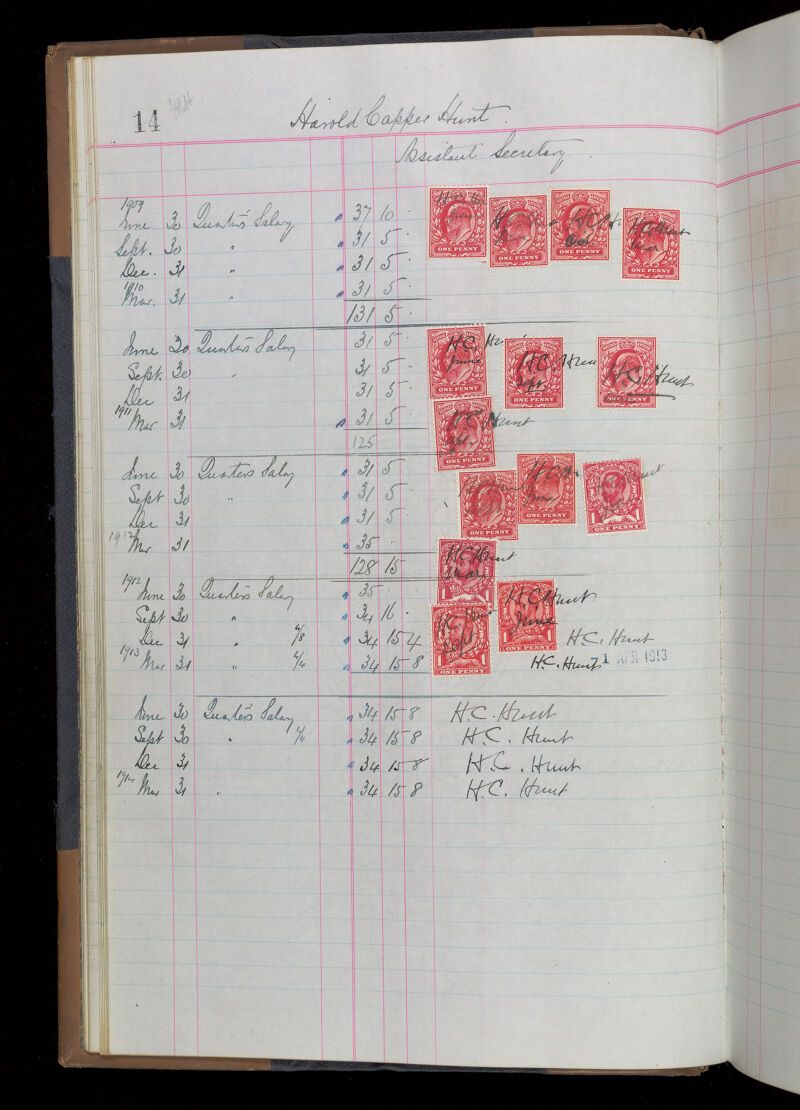 14
Harold Capper Hunt.
Assistant Secretary.
1909
June 30 Quarter's Salary " 37 10 -
Sept. 30 " " 31 5 -
Dec. 31 " " 31 5 -
1910
Mar. 31 " " 31 5 -
131 5 -
ONE PENNY ONE PENNY ONE PENNY ONE PENNY
H C Hunt
June 30 Quarter's Salary 31 5 - H.C. Hunt June
Sept. 30 " 31 5 - H.C. Hunt Sept.
Dec 31 31 5 - H.C. Hunt
ONE PENNY ONE PENNY ONE PENNY
1911
Mar 31 " 31 5 - H C Hunt
125
ONE PENNY
June 30 Quarter's Salary " 31 5
Sept 30 " " 31 5
Dec 31 " 31 5
ONE PENNY ONE PENNY 1 ONE PENNY
1912
Mar 31 " 35 - H C Hunt Mar
128 15
1 1
1912
June 30 Quarter's Salary " 35 - H C Hunt June
Sept 30 " " 34 16 - H.C. Hunt Sept
Dec 31 " 4/8 " 34 15 4 H.C. Hunt
1 ONE PENNY 1 ONE PENNY
1913
Mar 31 " 4/4 " 34 15 8 H.C. Hunt 1 APR 1913
June 30 Quarter's Salary " 34 15 8 H.C. Hunt
Sept 30 " 4/4 " 34 15 8 H.C. Hunt
Dec 31 " 34 15 8 H.C. Hunt
1914
Mar 31 " " 34 15 8 H.C. Hunt